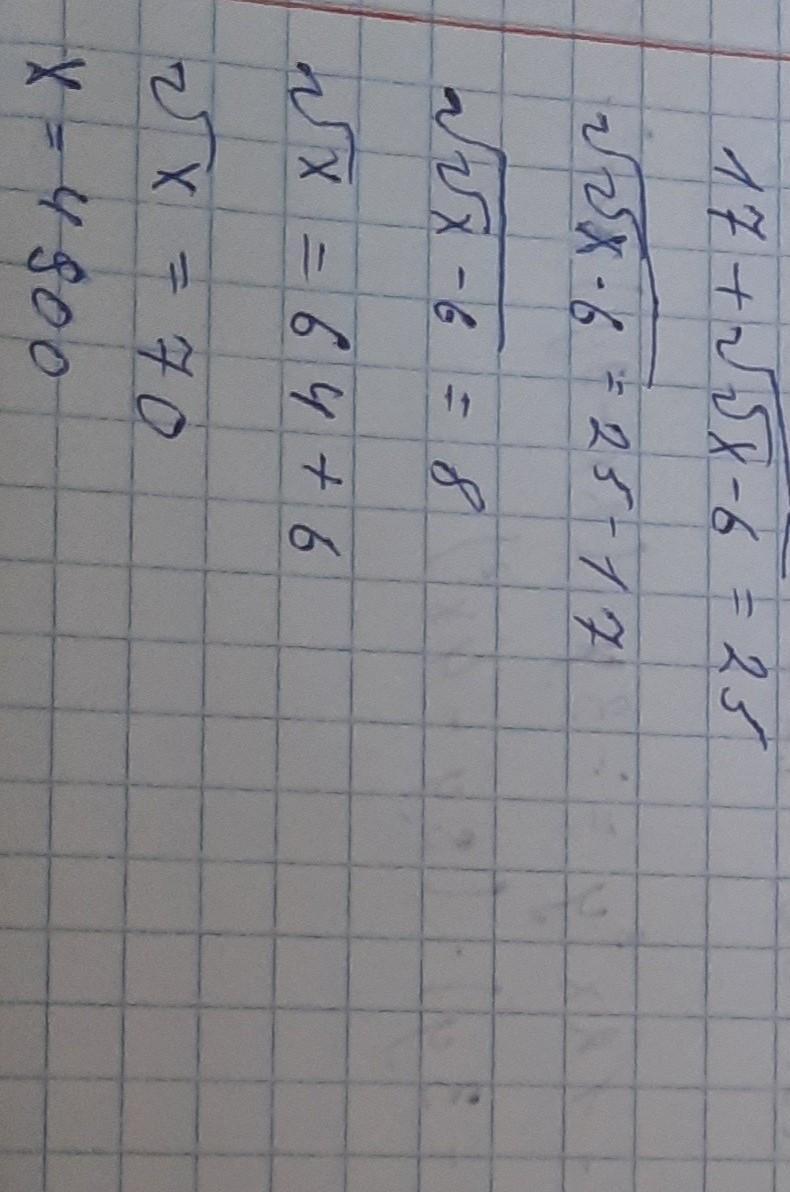 17 + √(√x - 6) = 25
√(√x - 6) = 25 - 17
√(√x - 6) = 8
√x = 64 + 6
√x = 70
x = 4800